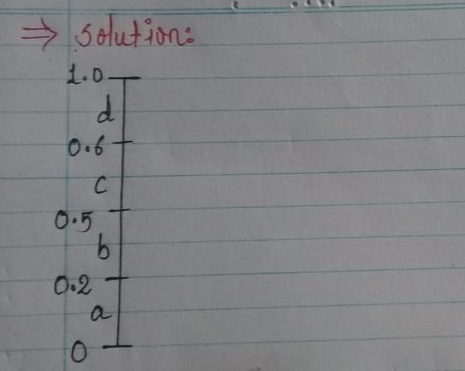 ⇒ Solution:
1.0
d
0.6
c
0.5
b
0.2
a
0